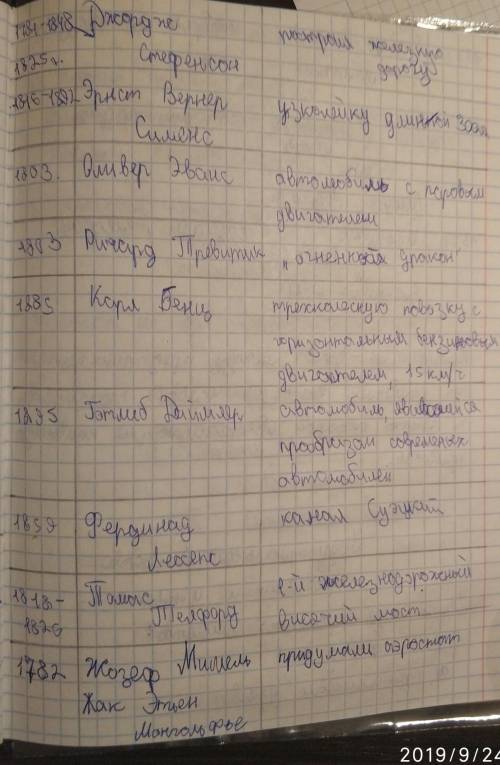 1781-1848 Джордж построил железную
1825г. Стефенсон дорогу
1816-1892 Эрнст Вернер узколейку длиной 300м
Сименс
1803. Оливер Эванс автомобиль с паровым
двигателем
1803 Ричард Тревитик „огненный дракон"
1885 Карл Бенц трехколесную повозку с
горизонтальным бензиновым
двигателем, 15 км/ч
1895 Готлеб Даймлер автомобиль, явившийся
праобразом современых
автомобилей
1859 Фердинад канал Суэцкий
Лессепс
1818- Томас 1-й железнодорожный
1826 Телфорд висячий мост
1782 Жозеф Мишель придумали аэростат
Жак Этьен
Монгольфье
2019/9/24